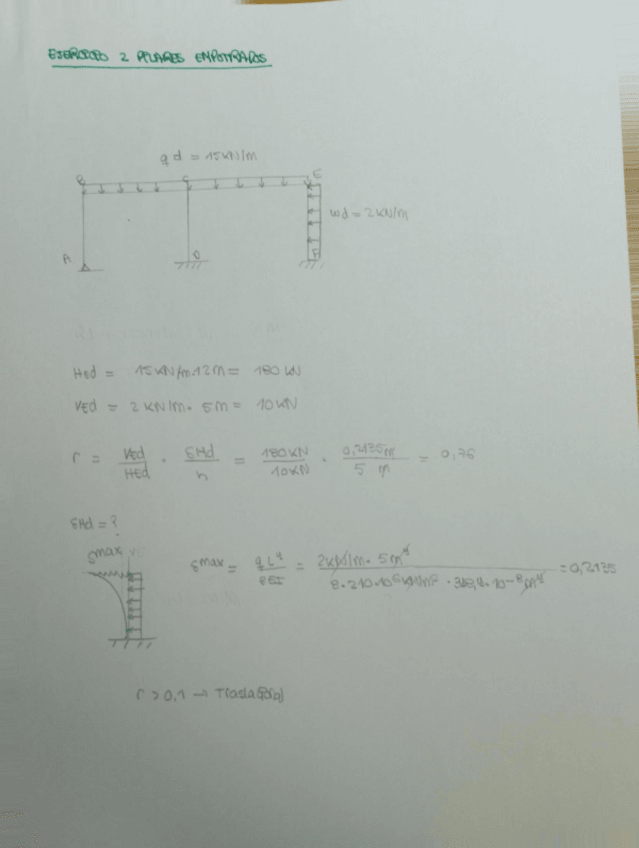 EJERCICIO 2 PILARES EMPOTRADOS
qd = 15 KN/m
B C E
wd = 2 KN/m
A D F
Hed = 15 KN/m.12m = 180 KN
Ved = 2 KN/m. 5m = 10 KN
r = Ved/Hed . δHd/h = 180KN/10KN . 0,2135m/5 m = 0,76
δHd = ?
δmax
δmax = qL⁴/8EI = 2KN/m. 5m⁴ / = 0,2135
r > 0,1 → Traslacional